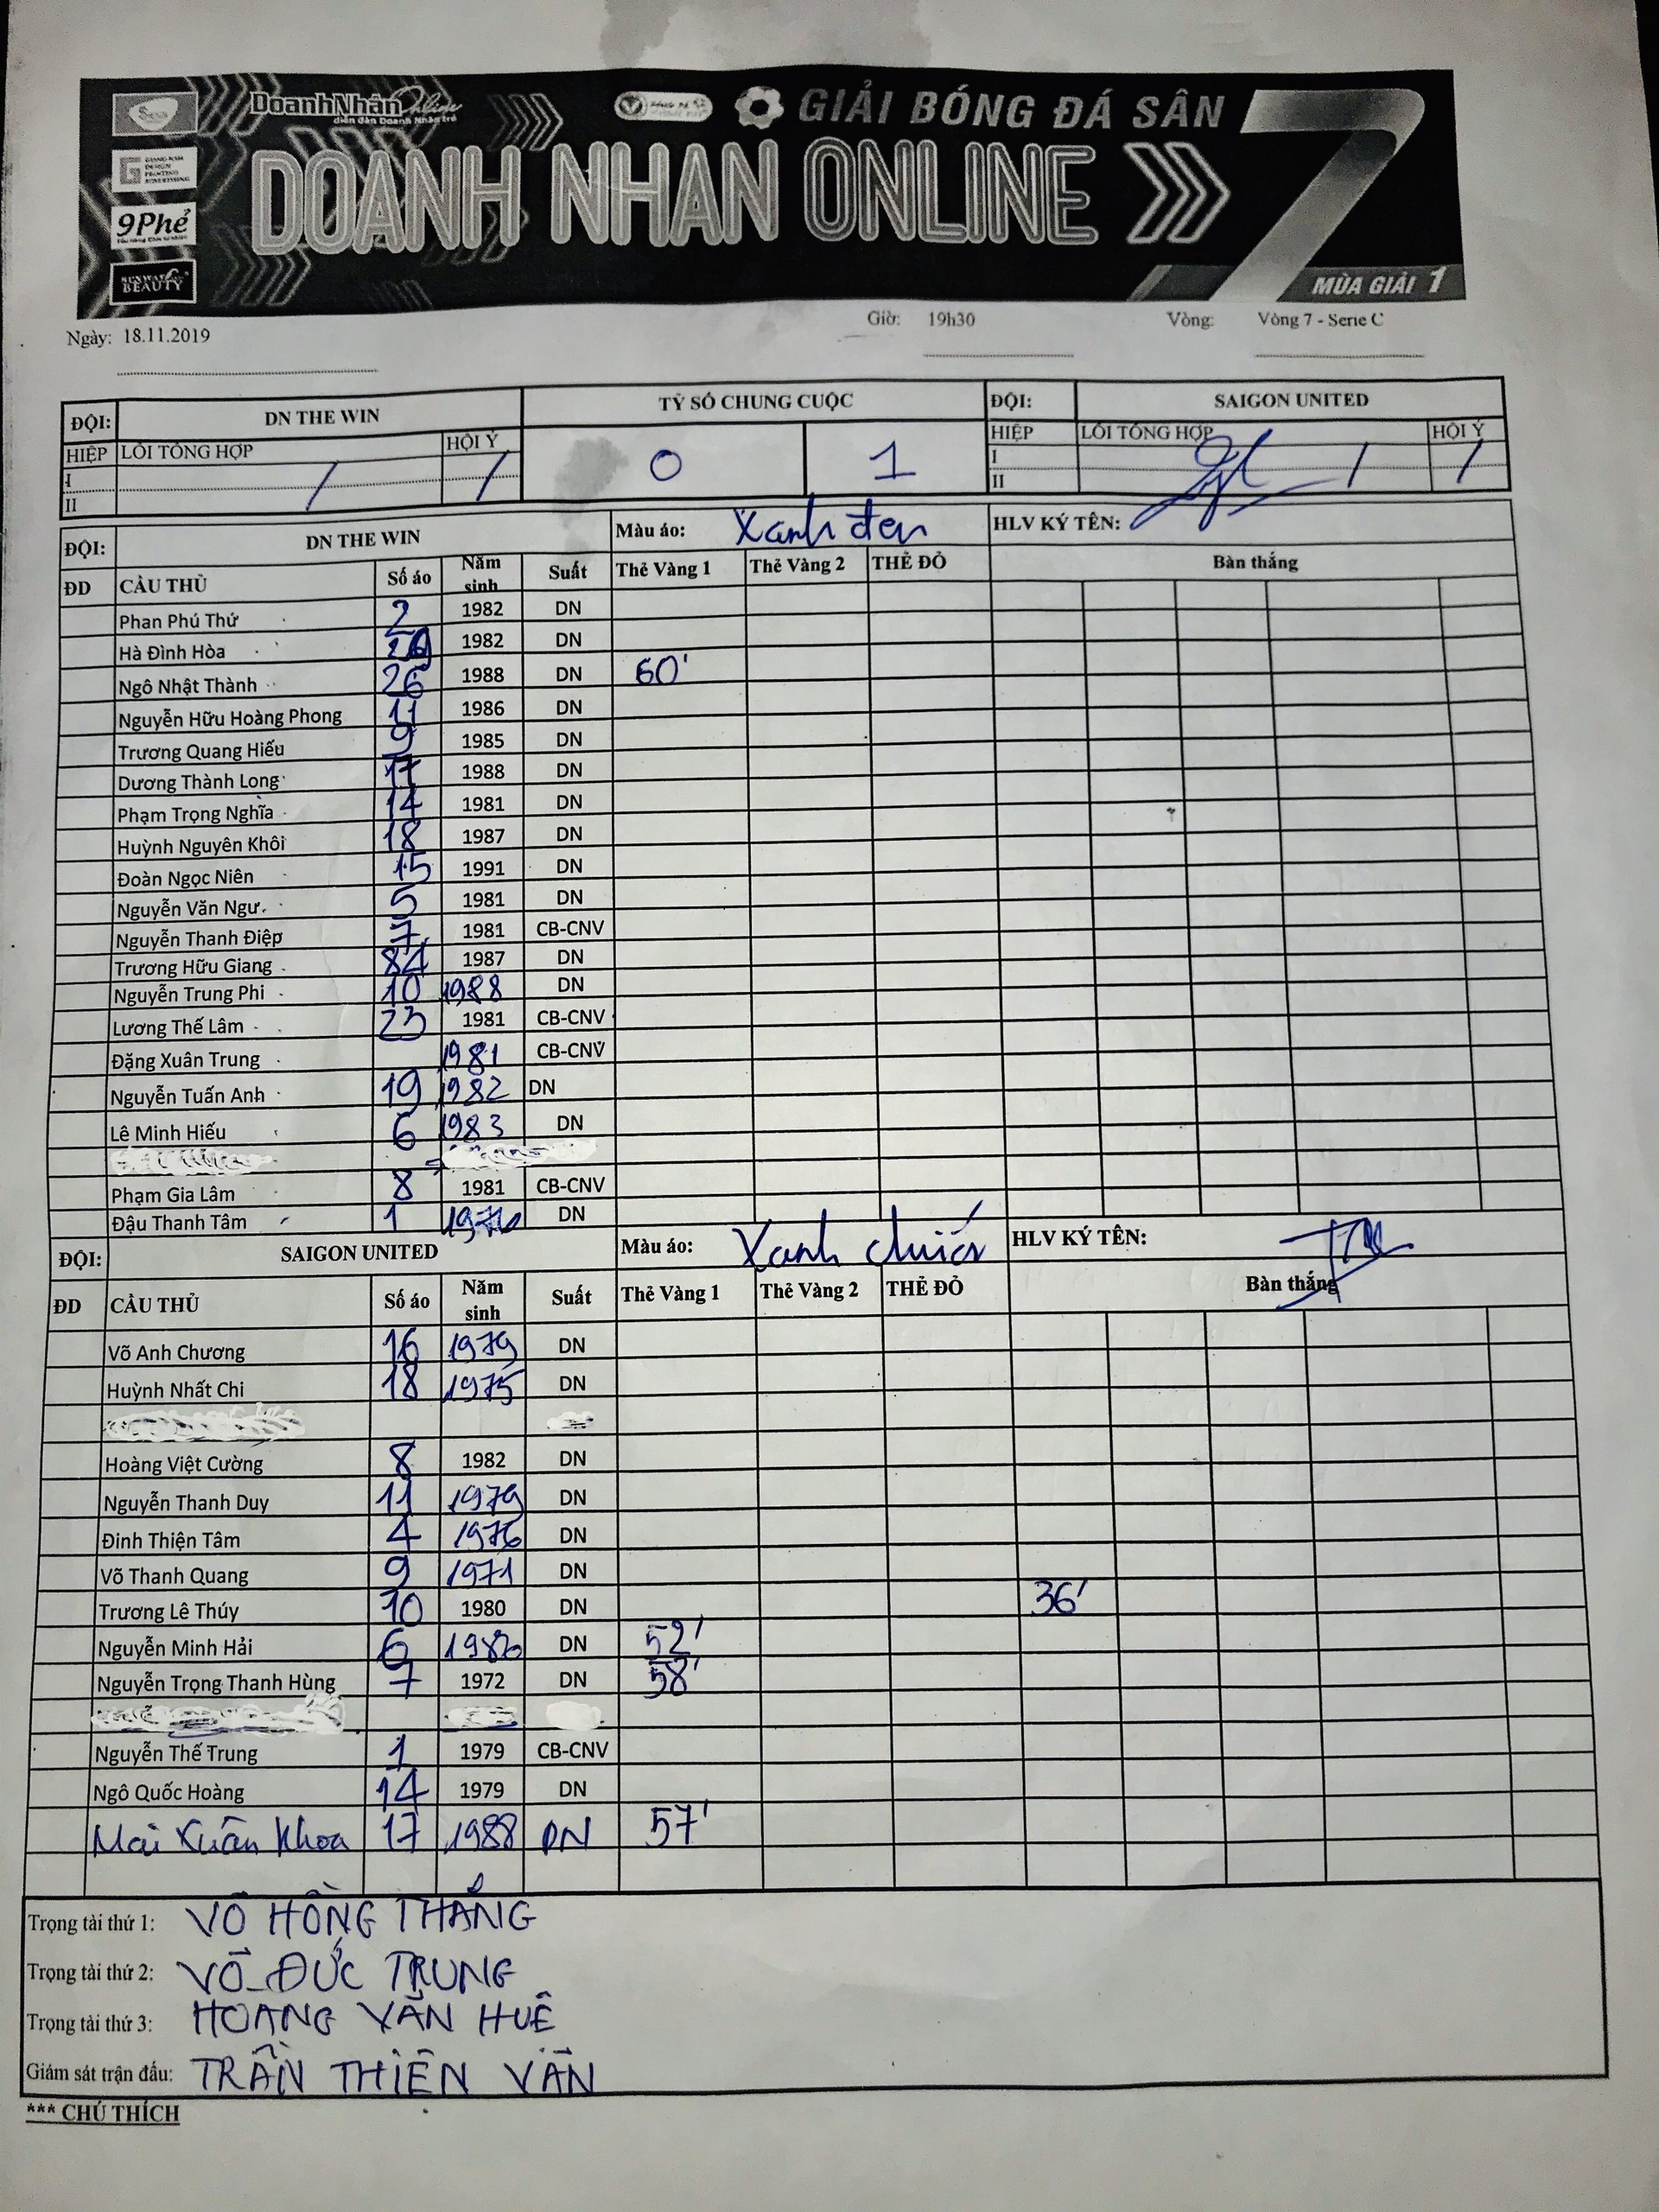 DoanhNhân Online
diễn đàn Doanh Nhân trẻ
GIẢI BÓNG ĐÁ SÂN 7
DOANH NHAN ONLINE
9Phẻ
BEAUTY
MÙA GIẢI 1
Ngày: 18.11.2019 Giờ: 19h30 Vòng: Vòng 7 - Serie C
ĐỘI: DN THE WIN TỶ SỐ CHUNG CUỘC ĐỘI: SAIGON UNITED
HIỆP LỖI TỔNG HỢP HỘI Ý 0 1 HIỆP LỖI TỔNG HỢP HỘI Ý
I / / I / /
II II
ĐỘI: DN THE WIN Màu áo: Xanh đen HLV KÝ TÊN:
ĐD CẦU THỦ Số áo Năm sinh Suất Thẻ Vàng 1 Thẻ Vàng 2 THẺ ĐỎ Bàn thắng
Phan Phú Thứ 2 1982 DN
Hà Đình Hòa 1982 DN
Ngô Nhật Thành 26 1988 DN 60'
Nguyễn Hữu Hoàng Phong 11 1986 DN
Trương Quang Hiếu 9 1985 DN
Dương Thành Long 17 1988 DN
Phạm Trọng Nghĩa 14 1981 DN
Huỳnh Nguyên Khôi 18 1987 DN
Đoàn Ngọc Niên 15 1991 DN
Nguyễn Văn Ngư 5 1981 DN
Nguyễn Thanh Điệp 7 1981 CB-CNV
Trương Hữu Giang 84 1987 DN
Nguyễn Trung Phi 10 1988 DN
Lương Thế Lâm 23 1981 CB-CNV
Đặng Xuân Trung 1981 CB-CNV
Nguyễn Tuấn Anh 19 1982 DN
Lê Minh Hiếu 6 1983 DN
Phạm Gia Lâm 8 1981 CB-CNV
Đậu Thanh Tâm 1 DN
ĐỘI: SAIGON UNITED Màu áo: Xanh chuối HLV KÝ TÊN:
ĐD CẦU THỦ Số áo Năm sinh Suất Thẻ Vàng 1 Thẻ Vàng 2 THẺ ĐỎ Bàn thắng
Võ Anh Chương 16 1979 DN
Huỳnh Nhất Chi 18 1975 DN
Hoàng Việt Cường 8 1982 DN
Nguyễn Thanh Duy 11 1979 DN
Đinh Thiện Tâm 4 1976 DN
Võ Thanh Quang 9 1971 DN
Trương Lê Thúy 10 1980 DN 36'
Nguyễn Minh Hải 6 DN 52'
Nguyễn Trọng Thanh Hùng 7 1972 DN 58'
Nguyễn Thế Trung 1 1979 CB-CNV
Ngô Quốc Hoàng 14 1979 DN
Mai Xuân Khoa 17 1988 DN 57'
Trọng tài thứ 1: VÕ HỒNG THẮNG
Trọng tài thứ 2: VÕ ĐỨC TRUNG
Trọng tài thứ 3: HOANG VĂN HUÊ
Giám sát trận đấu: TRẦN THIÊN VÂN
*** CHÚ THÍCH